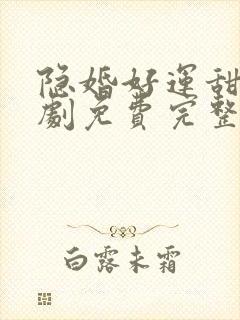 隐婚好运甜
劇免費完整
白露未霜